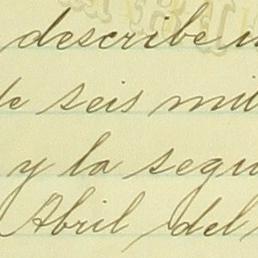 describe
de seis mil
y la segu
Abril, del